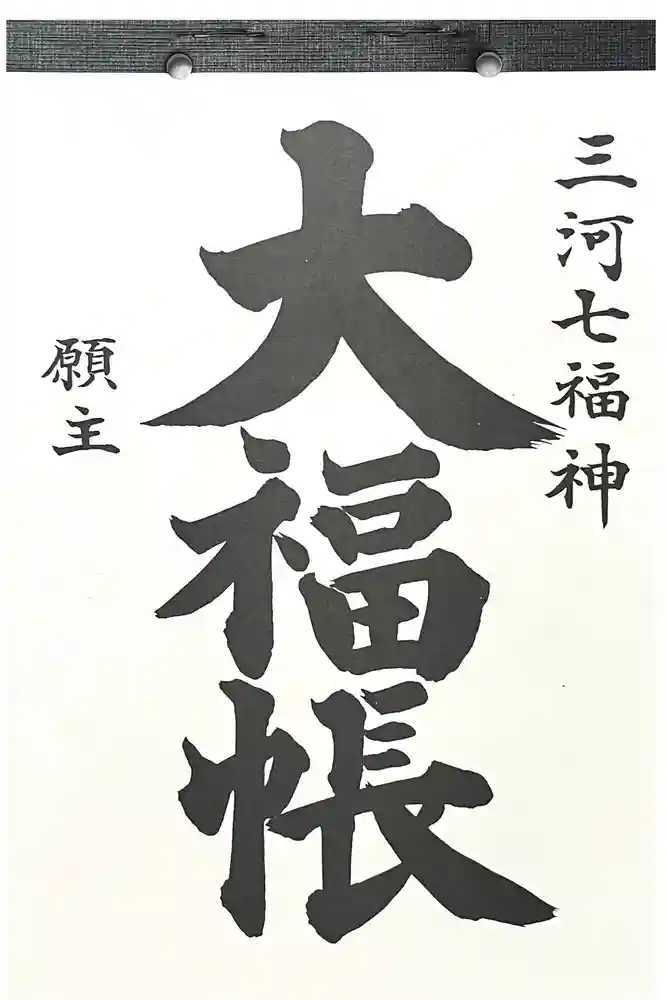 三河七福神
大福帳
願主